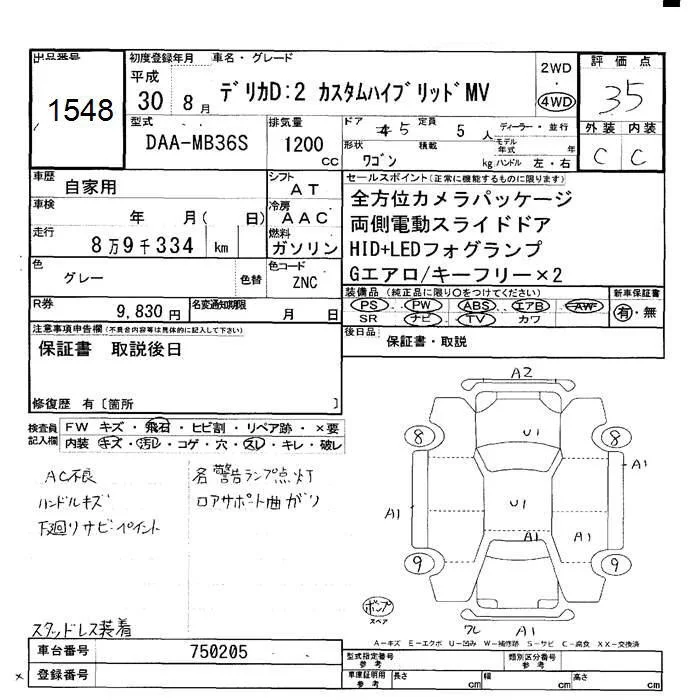 出品番号
1548
初度登録年月
平成
30 8月
車名・グレード
デリカD:2 カスタムハイブリッドMV
2WD
4WD
評価点
35
外装 内装
C C
型式
DAA-MB36S
排気量
1200
CC
ドア
45
定員
5 人
ディーラー・並行
形状
ワゴン
積載
kg
モデル年式 年
ハンドル 左・右
車歴
自家用
シフト
AT
車検
年 月( 日)
冷房
AAC
走行
8万9千334 km
燃料
ガソリン
色
グレー
色替
色コード
ZNC
R券
9,830 円
名変通知期限
月 日
セールスポイント(正常に機能するものに限ります)
全方位カメラパッケージ
両側電動スライドドア
HID+LEDフォグランプ
Gエアロ/キーフリー×2
装備品(純正品に限り○をつけてください)
PS PW ABS エアB AW
SR ナビ TV カワ
新車保証書
有・無
後日品
保証書・取説
注意事項申告欄(不具合内容等は具体的に記入して下さい)
保証書 取説後日
修復歴 有[箇所 ]
検査員記入欄
FW キズ・飛石・ヒビ割・リペア跡・×要
内装 キズ・汚レ・コゲ・穴・スレ・キレ・破レ
AC不良
ハンドルキズ
下廻リサビ・ペイント
各警告ランプ点灯
ロアサポート曲ガリ
スタッドレス装着
A2
U1
8
8
A1
A1
U1
A1
A1
9
9
ポンプ
スペア
ワレ A1
A-キズ E-エクボ U-凹み W-補修跡 S-サビ C-腐食 XX-交換済
車台番号
750205
登録番号
×
型式指定番号
参考
類別区分番号
参考
車庫証明用
参考
長さ cm
幅 cm
高さ cm